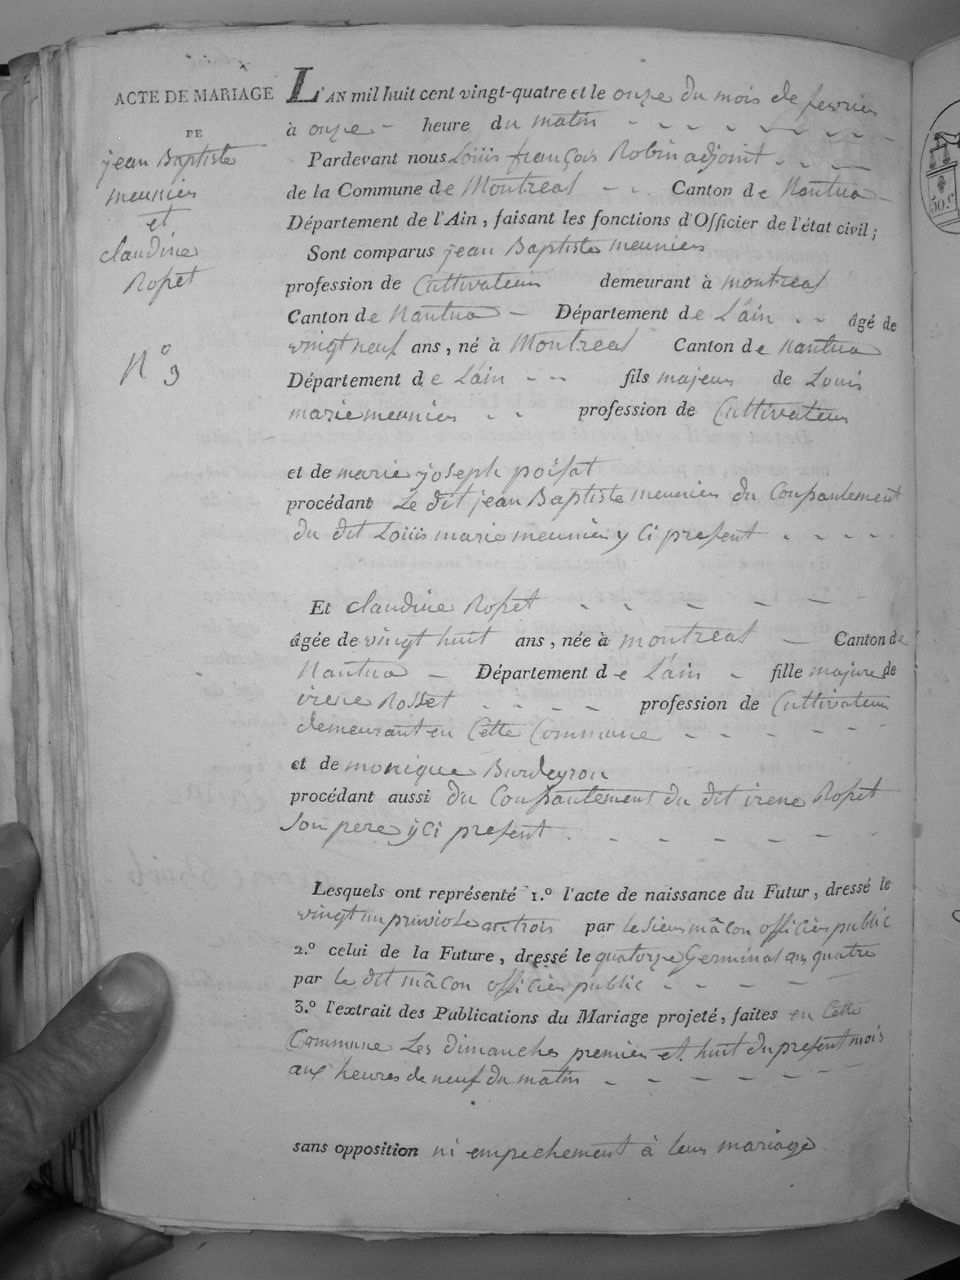 ACTE DE MARIAGE
DE
jean Baptiste
meunier
et
claudine
Rosset
N.º 9
L'AN mil huit cent vingt-quatre et le onze du mois de fevrier
à onze - heure du matin
Pardevant nous Loüis françois Robin adjoint
de la Commune de Montreal Canton de Nantua
Département de l'Ain, faisant les fonctions d'Officier de l'état civil;
Sont comparus jean Baptiste meunier
profession de Cultivateur demeurant à montreal
Canton de Nantua Département de L'ain âgé de
vingt neuf ans, né à Montreal Canton de nantua
Département de L'ain fils majeur de Louis
marie meunier profession de Cultivateur
et de marie joseph poisat
procédant Le dit jean Baptiste meunier du Consantement
du dit Loüis marie meunier y Ci present
Et claudine Rosset
âgée de vingt huit ans, née à montreal Canton de
Nantua Département de L'ain fille majure de
irene Rosset profession de Cultivateur
demeurant en Cette Commune
et de monique Burdeyron
procédant aussi du Consantement du dit irene Rosset
Son pere y Ci present
Lesquels ont représenté 1.º l'acte de naissance du Futur, dressé le
vingt un an trois par le sieur mâcon officier public
2.º celui de la Future, dressé le quatorze Germinal an quatre
par le dit mâcon officier public
3.º l'extrait des Publications du Mariage projeté, faites en Cette
Commune Les dimanches premier et huit du present mois
aux heures de neuf du matin
sans opposition ni empechement à leur mariage
50.c